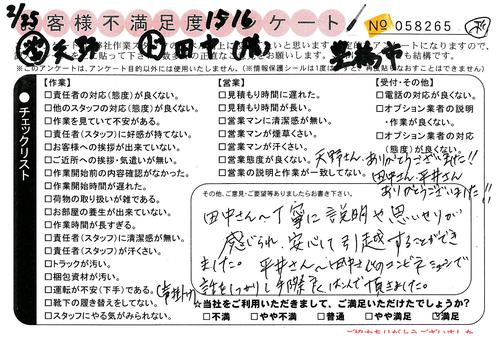 2/25
お客様不満足度1516ケート！
No 058265
天野 田中(旅) 豊橋市
※このアンケートは、アンケート目的以外には使用いたしません。(※情報保護シールは1度はがすと、再度貼りなおすことはできません)
チェックリスト
【作業】
□責任者の対応(態度)が良くない。
□他のスタッフの対応(態度)が良くない。
□作業を見ていて不安がある。
□責任者(スタッフ)に好感が持てない。
□お客様への挨拶が出来ていない。
□ご近所への挨拶・気遣いが無い。
□作業開始前の内容確認がなかった。
□作業開始時間が遅れた。
□荷物の取り扱いが雑である。
□お部屋の養生が出来ていない。
□作業時間が長すぎる。
□責任者(スタッフ)に清潔感が無い。
□責任者(スタッフ)が汗くさい。
□トラックが汚い。
□梱包資材が汚い。
□運転が不安(下手)である。
□靴下の履き替えをしてない。
□スタッフにやる気がみられない。
【営業】
□見積もり時間に遅れた。
□見積もり時間が長い。
□営業マンに清潔感が無い。
□営業マンが煙草くさい。
□営業マンが汗くさい。
□営業態度が良くない。
□営業の説明と作業が一致してない。
【受付・その他】
□電話の対応が良くない。
□オプション業者の説明
・作業が良くない。
□オプション業者の対応
(態度)が良くない。
天野さん、ありがとうございました!!
田中さん、平井さん
ありがとうございました!!
その他、ご意見・ご要望等ありましたらお書き下さい。
田中さん〜丁寧に説明や思いせりが
感じられ、安心して引越することができ
ました。平井さん〜田中さんとのコンビネーションで
話をつかりし手際良くはこんで頂きました。
☆当社をご利用いただきまして、ご満足いただけたでしょうか？
□不満 □やや不満 □普通 □やや満足 ☑満足
ご協力ありがとうございました